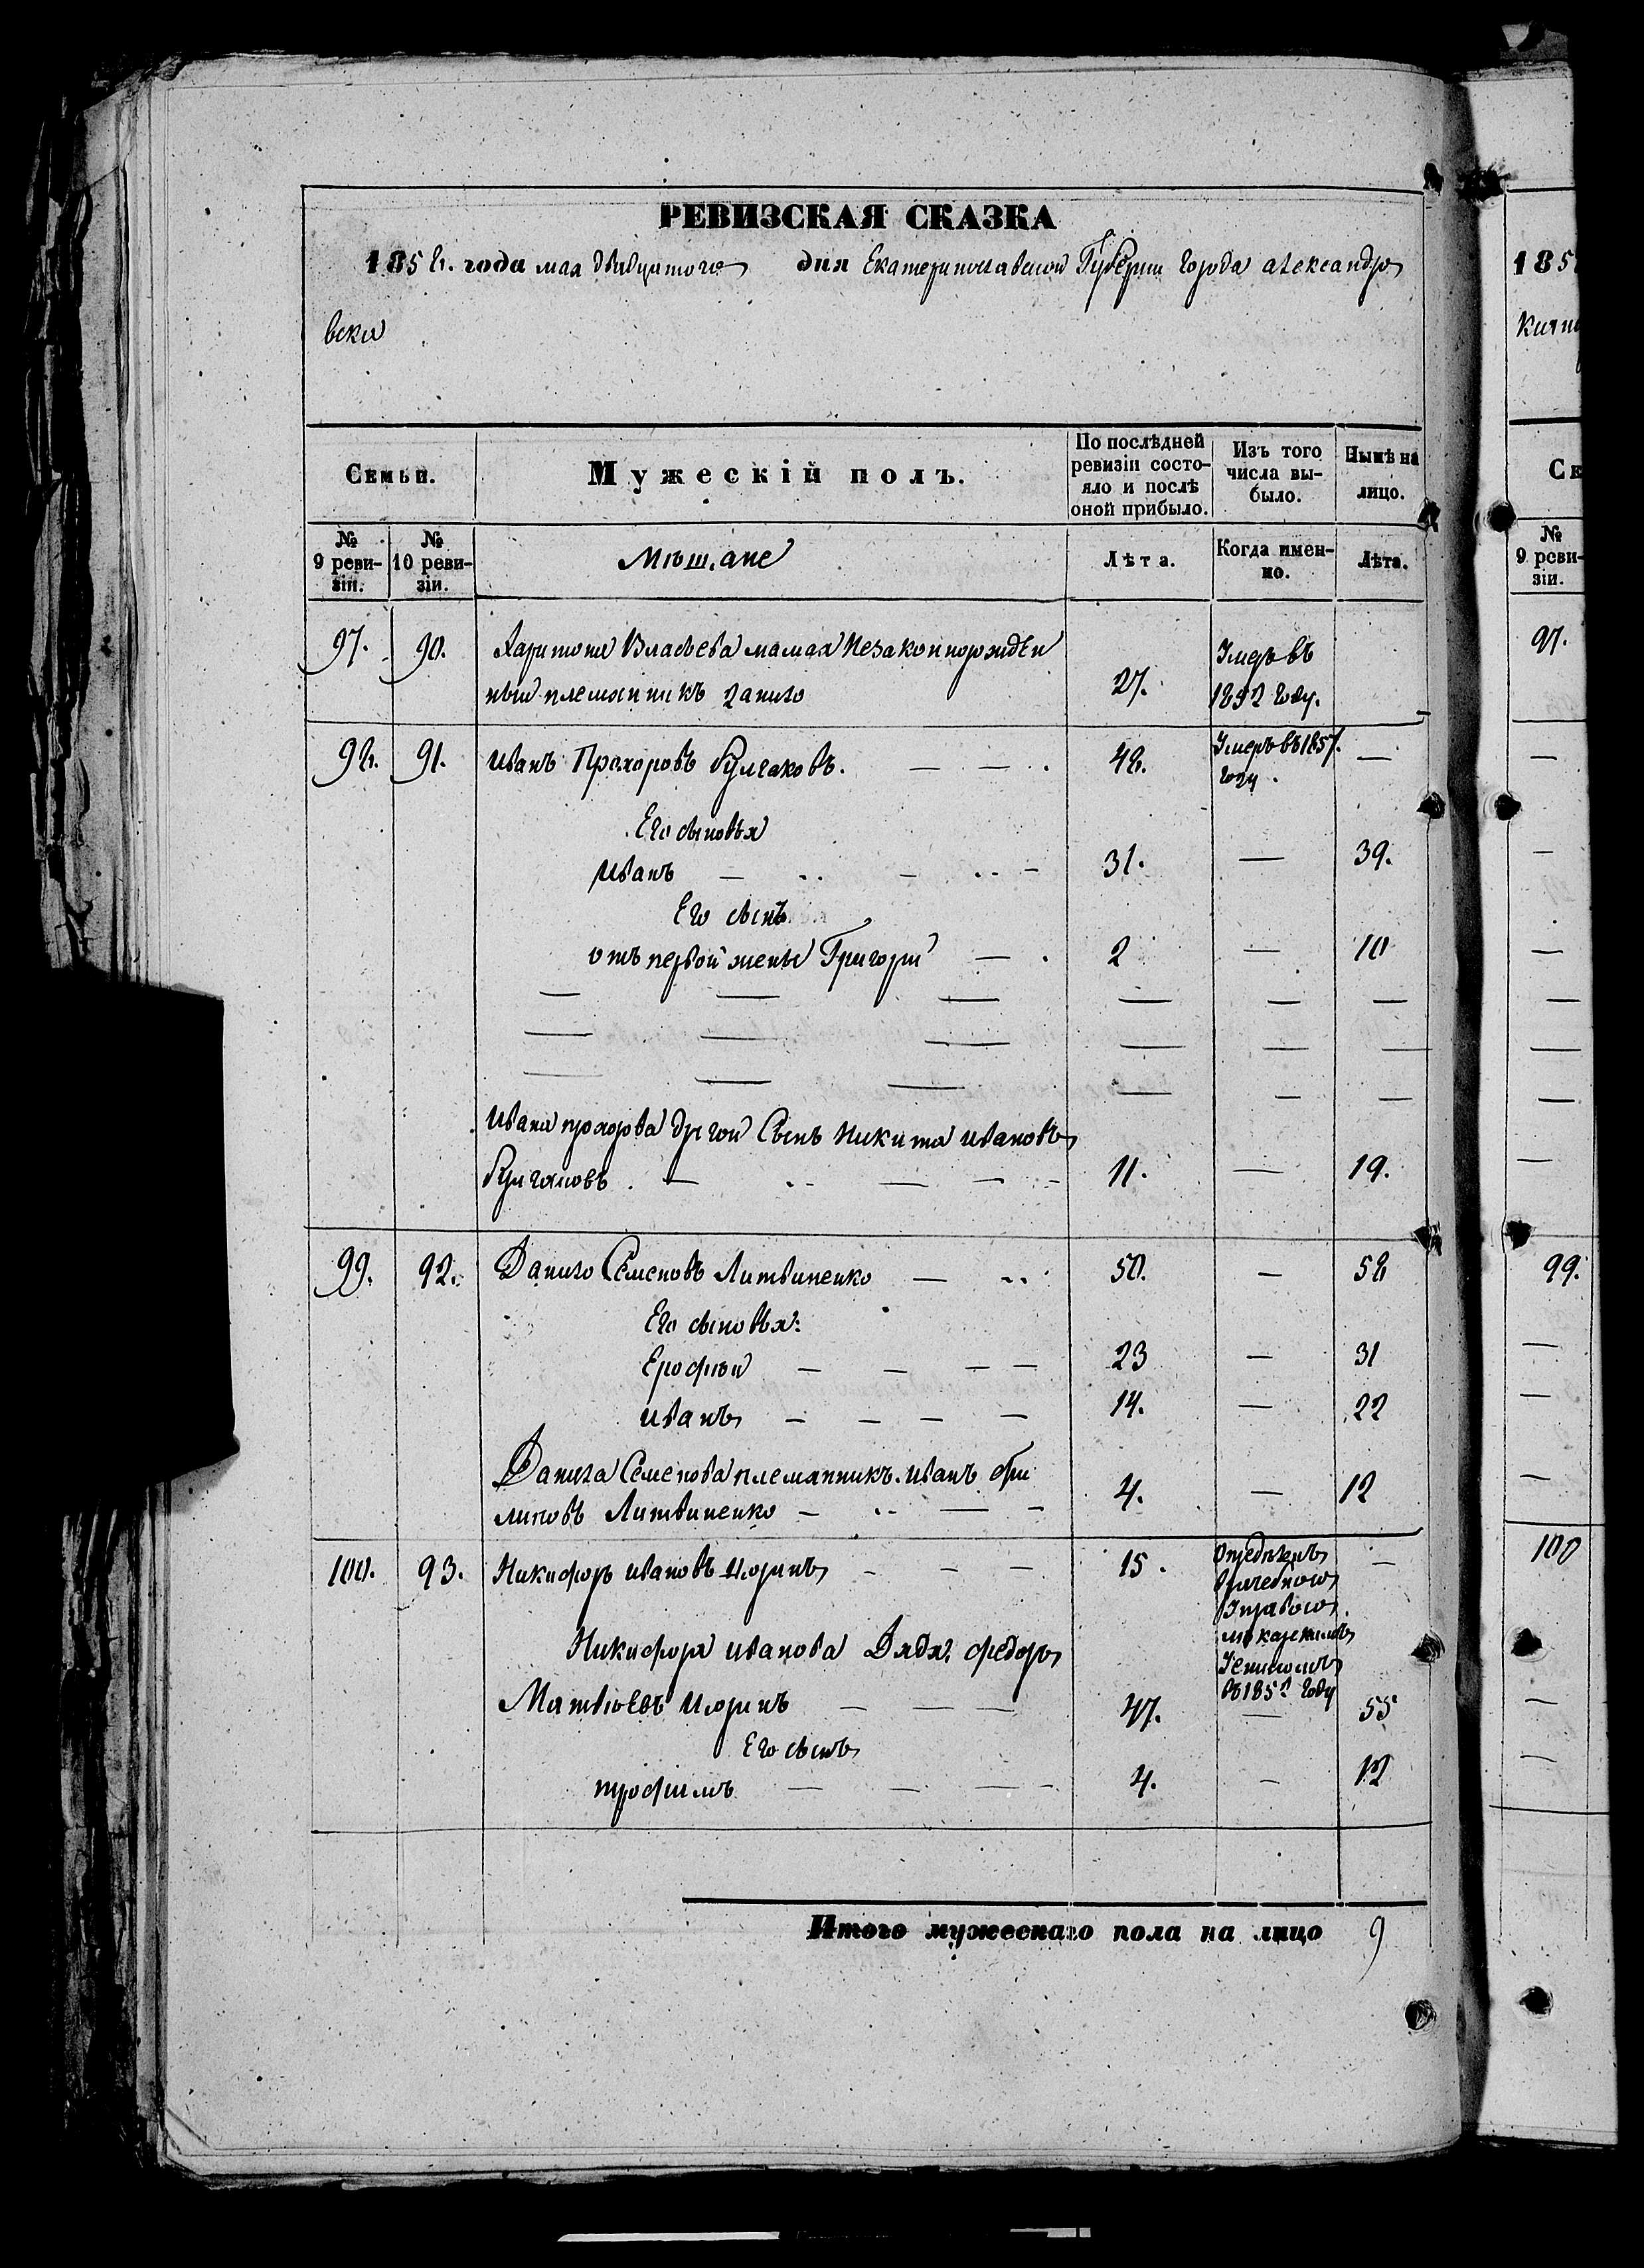 РЕВИЗСКАЯ СКАЗКА
1858. года мая двадцатого дня Екатеринославской Губернии города александро
вска
Семьи.
Мужескій полъ.
По послѣдней ревизіи состо-яло и послѣ оной прибыло.
Изъ того числа вы-было.
Нынѣ на лицо.
№ 9 реви-зіи.
№ 10 реви-зіи.
Мѣщане
Лѣта.
Когда имен-но.
Лѣта.
97. 90. Харитона Власьева мамая незаконнорожден
ный племянникъ данило 27. Умеръ въ 1852 году.
98. 91. Иванъ Прохоровъ булгаковъ. — — . 48. Умеръ въ 1857. году. —
Его сыновья
Иванъ — 31. — 39.
Его сынъ
отъ первой жены Григорій — 2 — 10
Ивана прохорова другой Сынъ Никита ивановъ
булгаковъ. — 11. — 19.
99. 92. Данило Семеновъ Литвиненко — 50. — 58
Его сыновья:
Ерофѣй — 23 — 31
иванъ — 14. — 22
Данила Семенова племянникъ. иванъ фи
липовъ Литвиненко — 4. — 12
100. 93. Никифоръ ивановъ — 15. —
Никифора иванова Дядя: федоръ
Матвѣевъ — 47. — 55
Его сынъ
трофимъ — 4. — 12
въ 185 году
Итого мужескаго пола на лицо 9
185
Се
№ 9 реви-зіи.
97.
99.
100